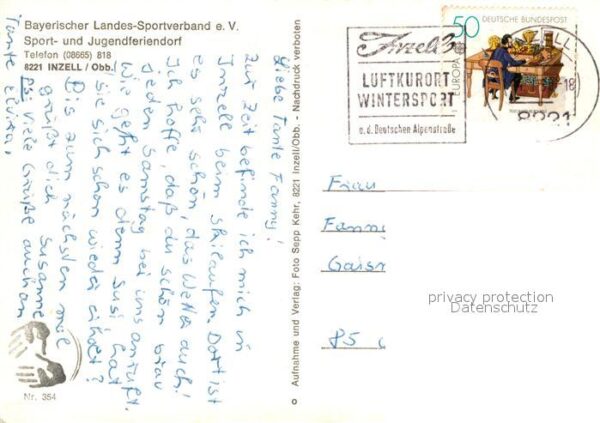 Bayerischer Landes-Sportverband e. V.
Sport- und Jugendferiendorf
Telefon (08665) 818
8221 INZELL / Obb.
Liebe Tante Fanny!
Zur Zeit befinde ich mich in
Inzell beim Skilaufen. Dort ist
es sehr schön, das Wetter auch!
Ich hoffe, daß du schön brav
jeden Samstag bei uns anrufst.
Wie geht es denn Susi hat
sie sich schon wieder erholt?
Bis zum nächsten mal
grüßt dich Susanne
PS: Viele Grüße auch an
Tante
Nr. 354
Aufnahme und Verlag: Foto Sepp Kehr, 8221 Inzell/Obb. - Nachdruck verboten
Inzell
LUFTKURORT
WINTERSPORT
a.d. Deutschen Alpenstraße
50
DEUTSCHE BUNDESPOST
EUROPA
-18
8221
Frau
Fanni
Gaisr
85
privacy protection
Datenschutz